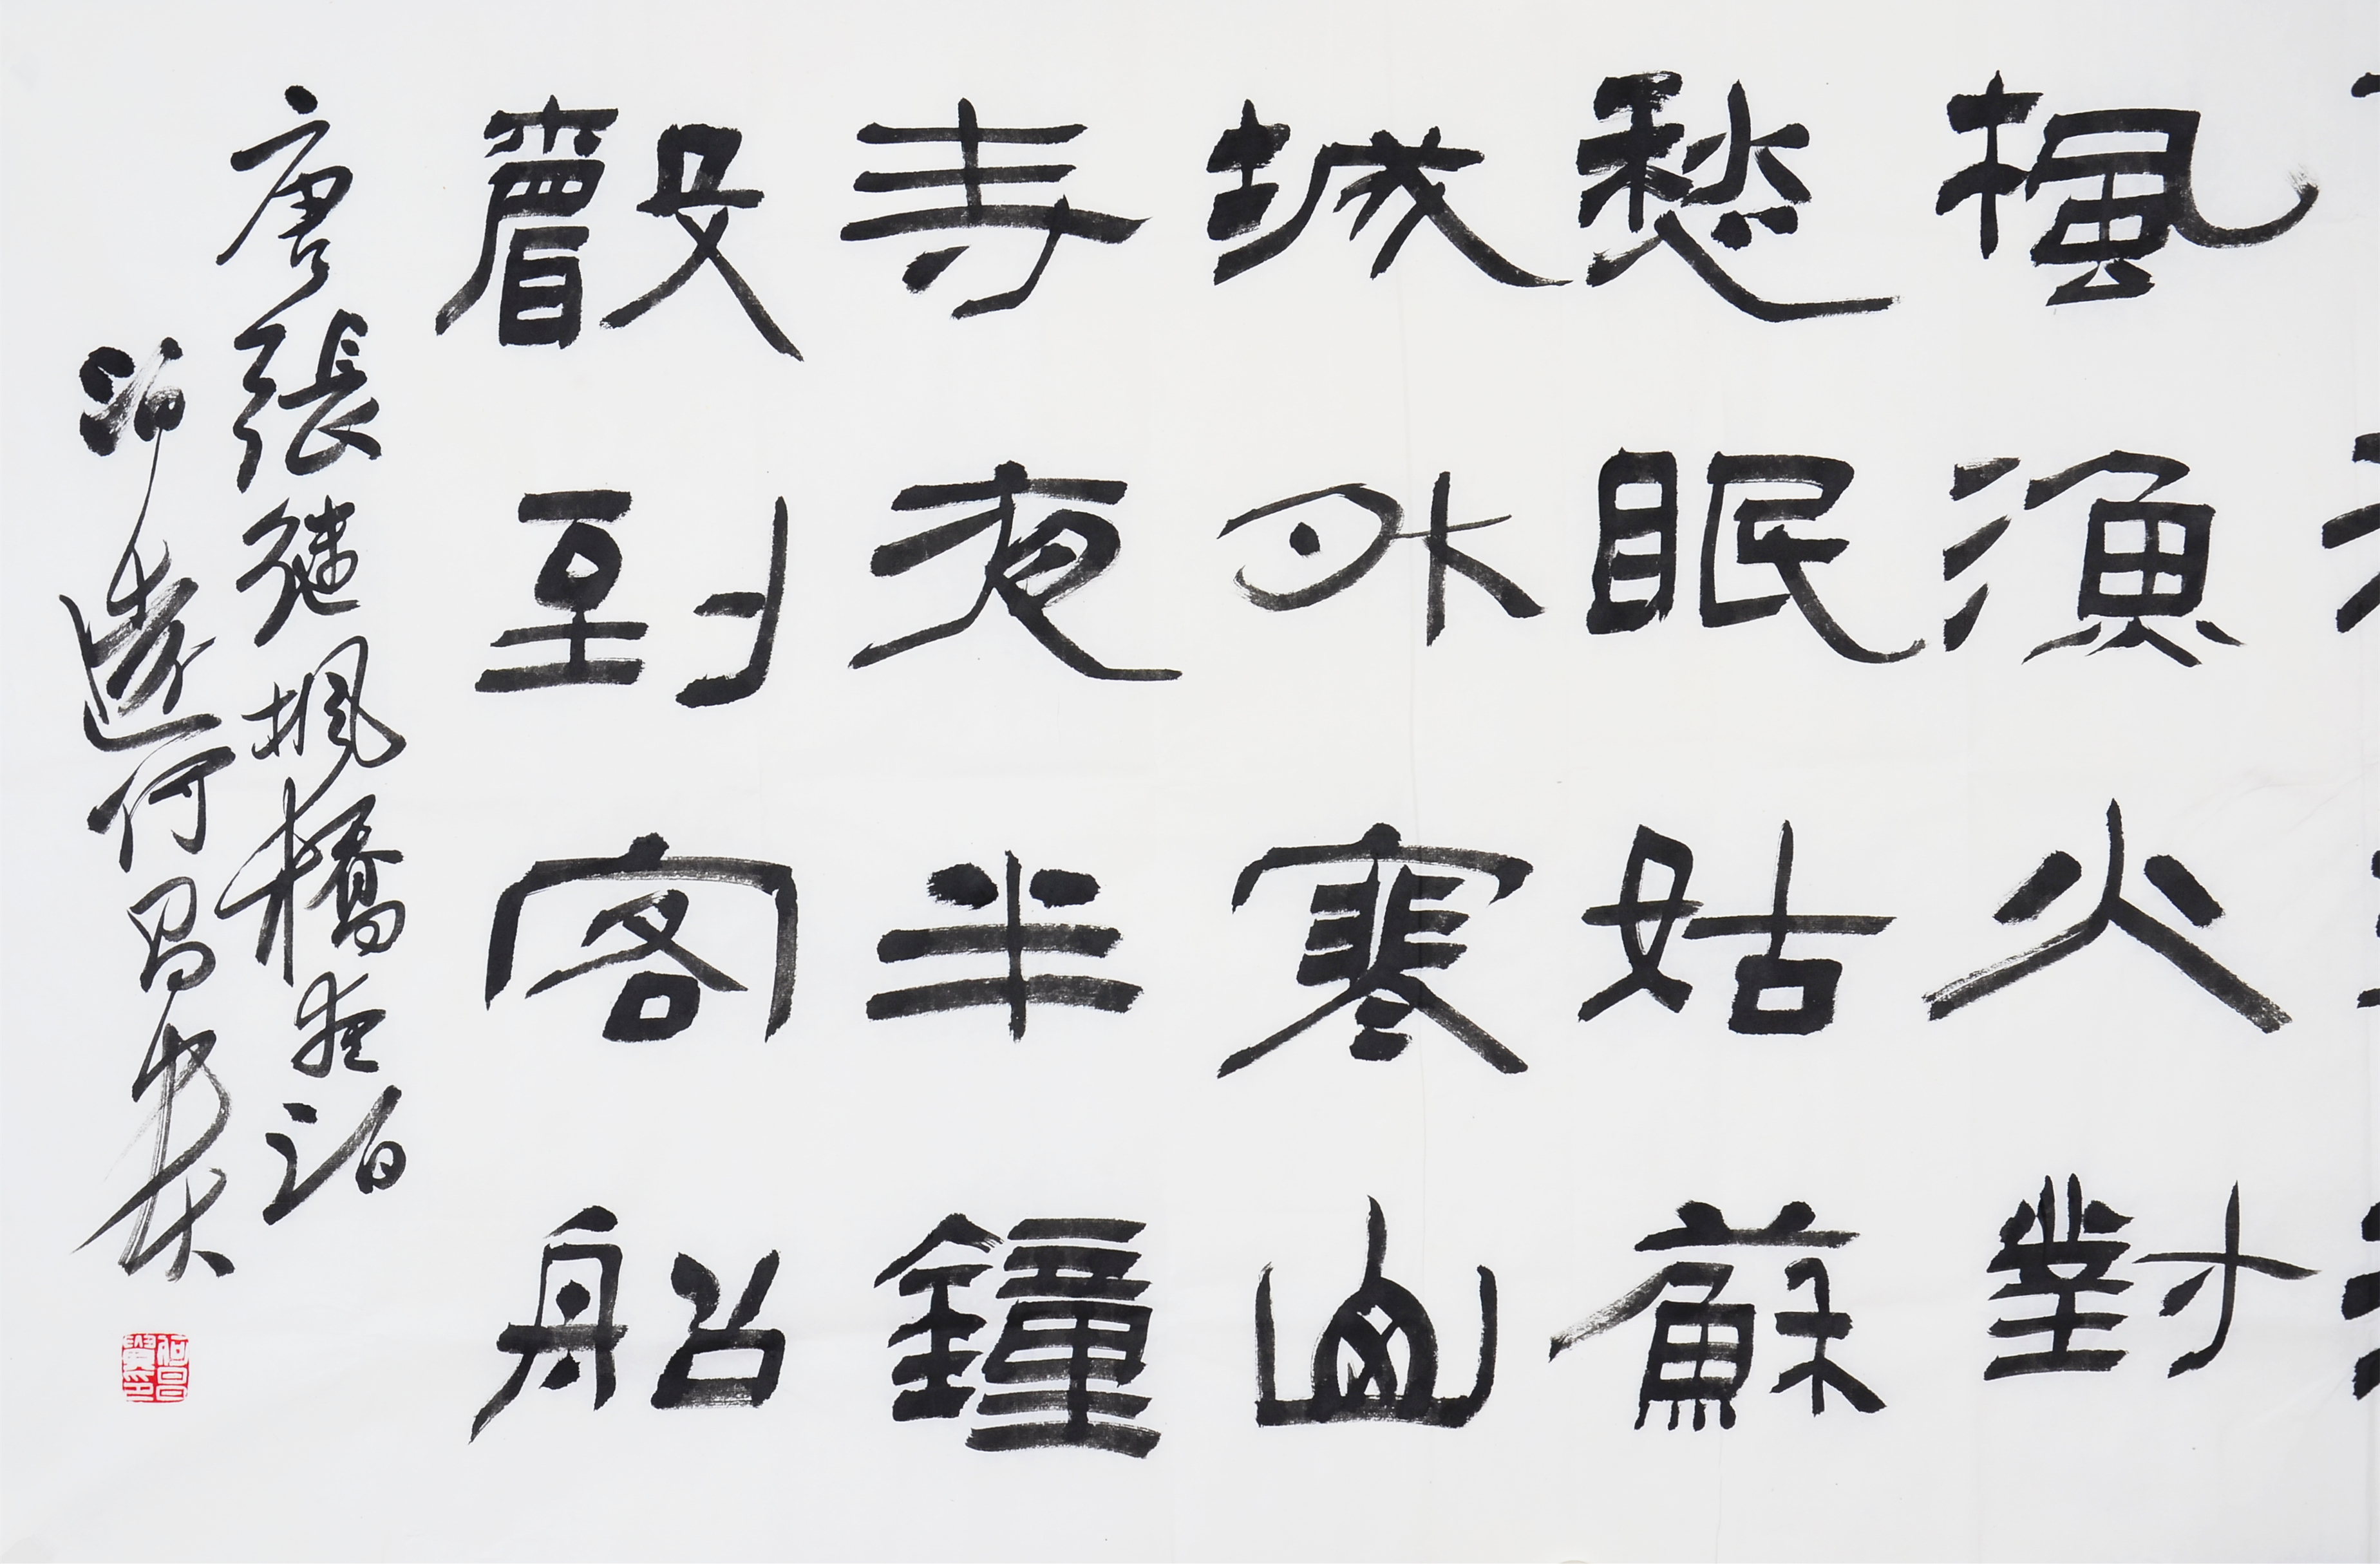 楓漁火對
愁眠姑蘇
城外寒山
寺夜半鐘
聲到客船
唐張繼楓橋夜泊
何昌